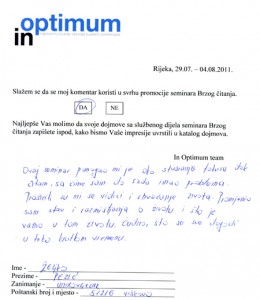 optimum
in
Rijeka, 29.07. – 04.08.2011.
Slažem se da se moj komentar koristi u svrhu promocije seminara Brzog čitanja.
DA NE
Najljepše Vas molimo da svoje dojmove sa službenog dijela seminara Brzog
čitanja zapišete ispod, kako bismo Vaše impresije uvrstili u katalog dojmova.
In Optimum team
Ovaj seminar pomogao mi je da
čitam, sa čime sam do sada imao problema.
mi se vidici i shvaćanje života. Promijenio
sam stav i razmišljanja o životu i što je
važno u tom životu. Čudno, što se sve dogodi
u tako kratkom vremenu.
Ime -
Prezime -
Zanimanje -
Poštanski broj i mjesto - 51216 Viškovo